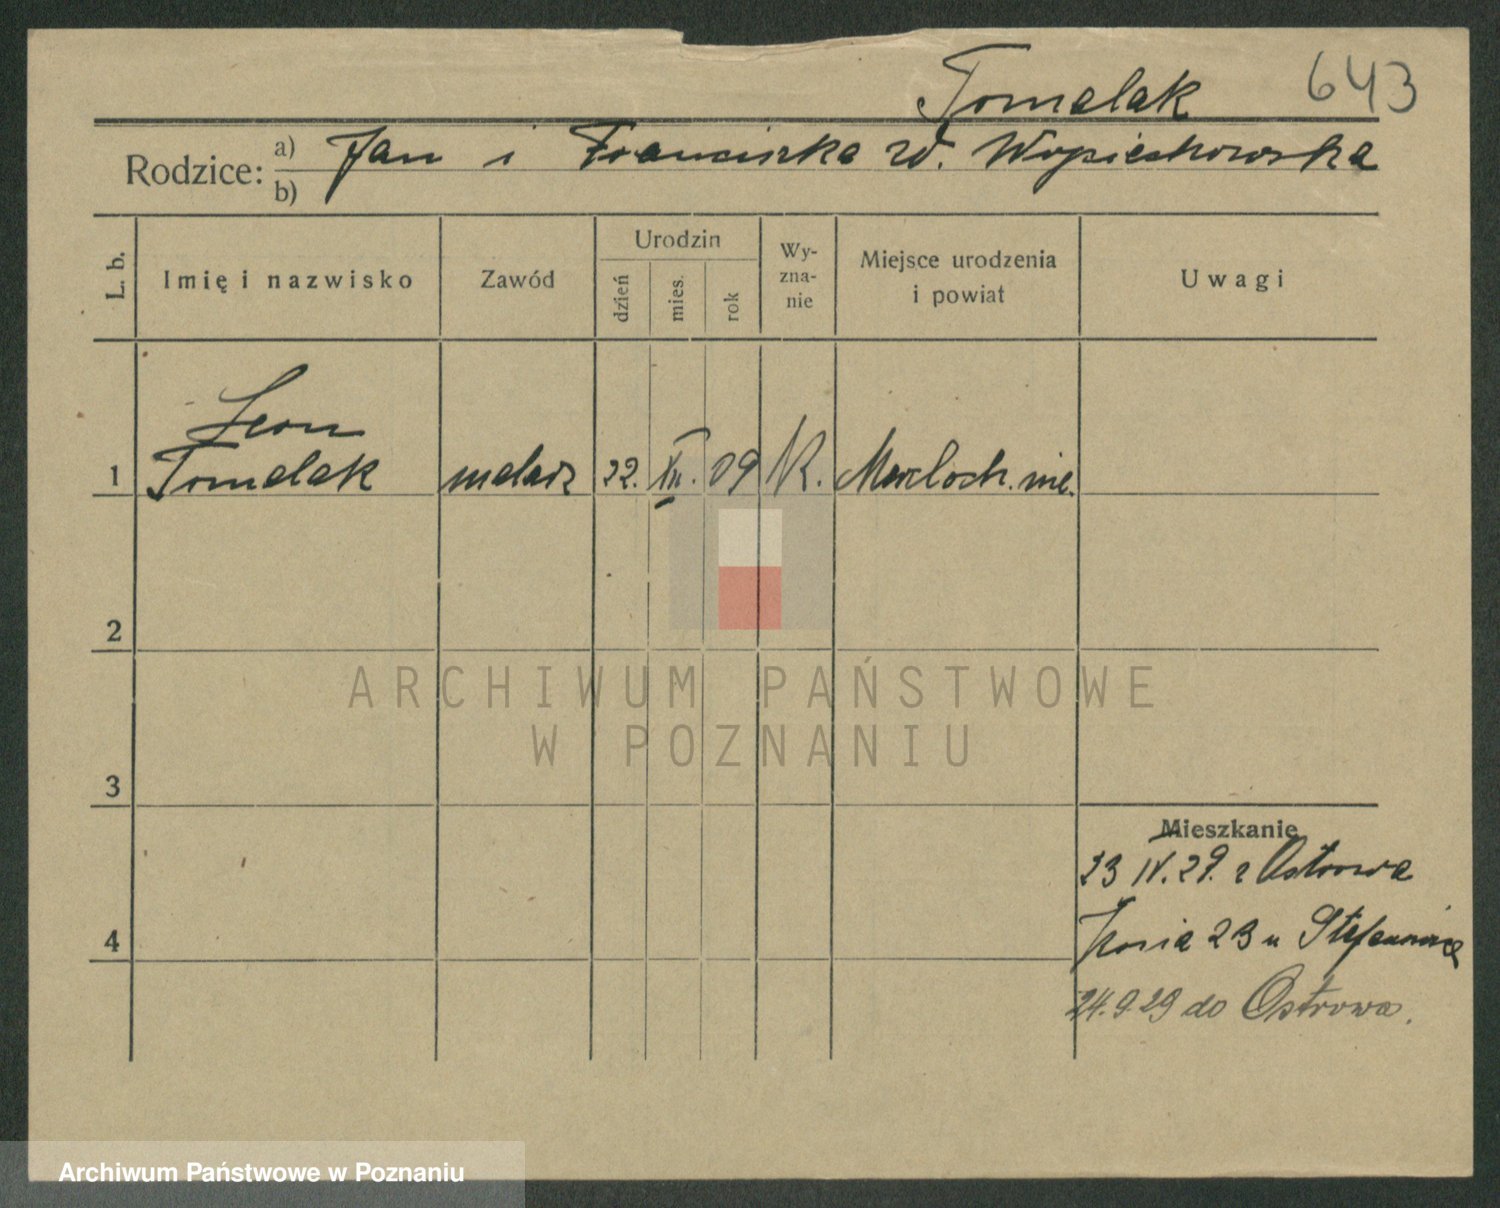 Tomelak 643
Rodzice: a) Jan i Franciszka zd. Wypiechowska
b)
L. b. Imię i nazwisko Zawód Urodzin dzień mies. rok Wy-zna-nie Miejsce urodzenia i powiat Uwagi
Leon
1 Tomelak malarz 22. XII. 09 K.
2
3
Mieszkanie
23 IV. 29. z Ostrowa
4 23 u
24.9.29 do Ostrowa.
ARCHIWUM PAŃSTWOWE
W POZNANIU
Archiwum Państwowe w Poznaniu